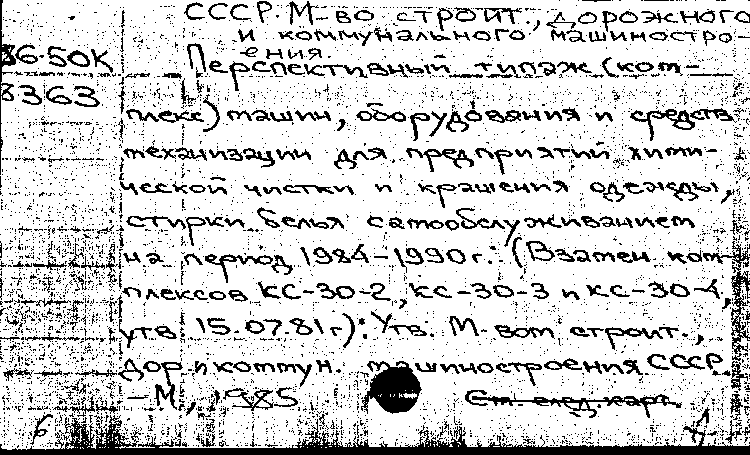 СССР. М-во строит., дорожного
и коммунального машинострo-
ения.
86-50К
Перспективный типаж (ком-
8363
плекс) машин, оборудования и средств
механизации для предприятий хими-
ческой чистки и крашения одежды,
стирки белья самообслуживанием
на период 1984-1990 г.: (Взамен ком-
плексов КС-30-2, КС-30-3 и КС-30-4,
утв. 15.07.81г): Утв. М-вом строит.,
дор. и коммун. машиностроения СССР.
-М., 1985
См. след. карт.
6